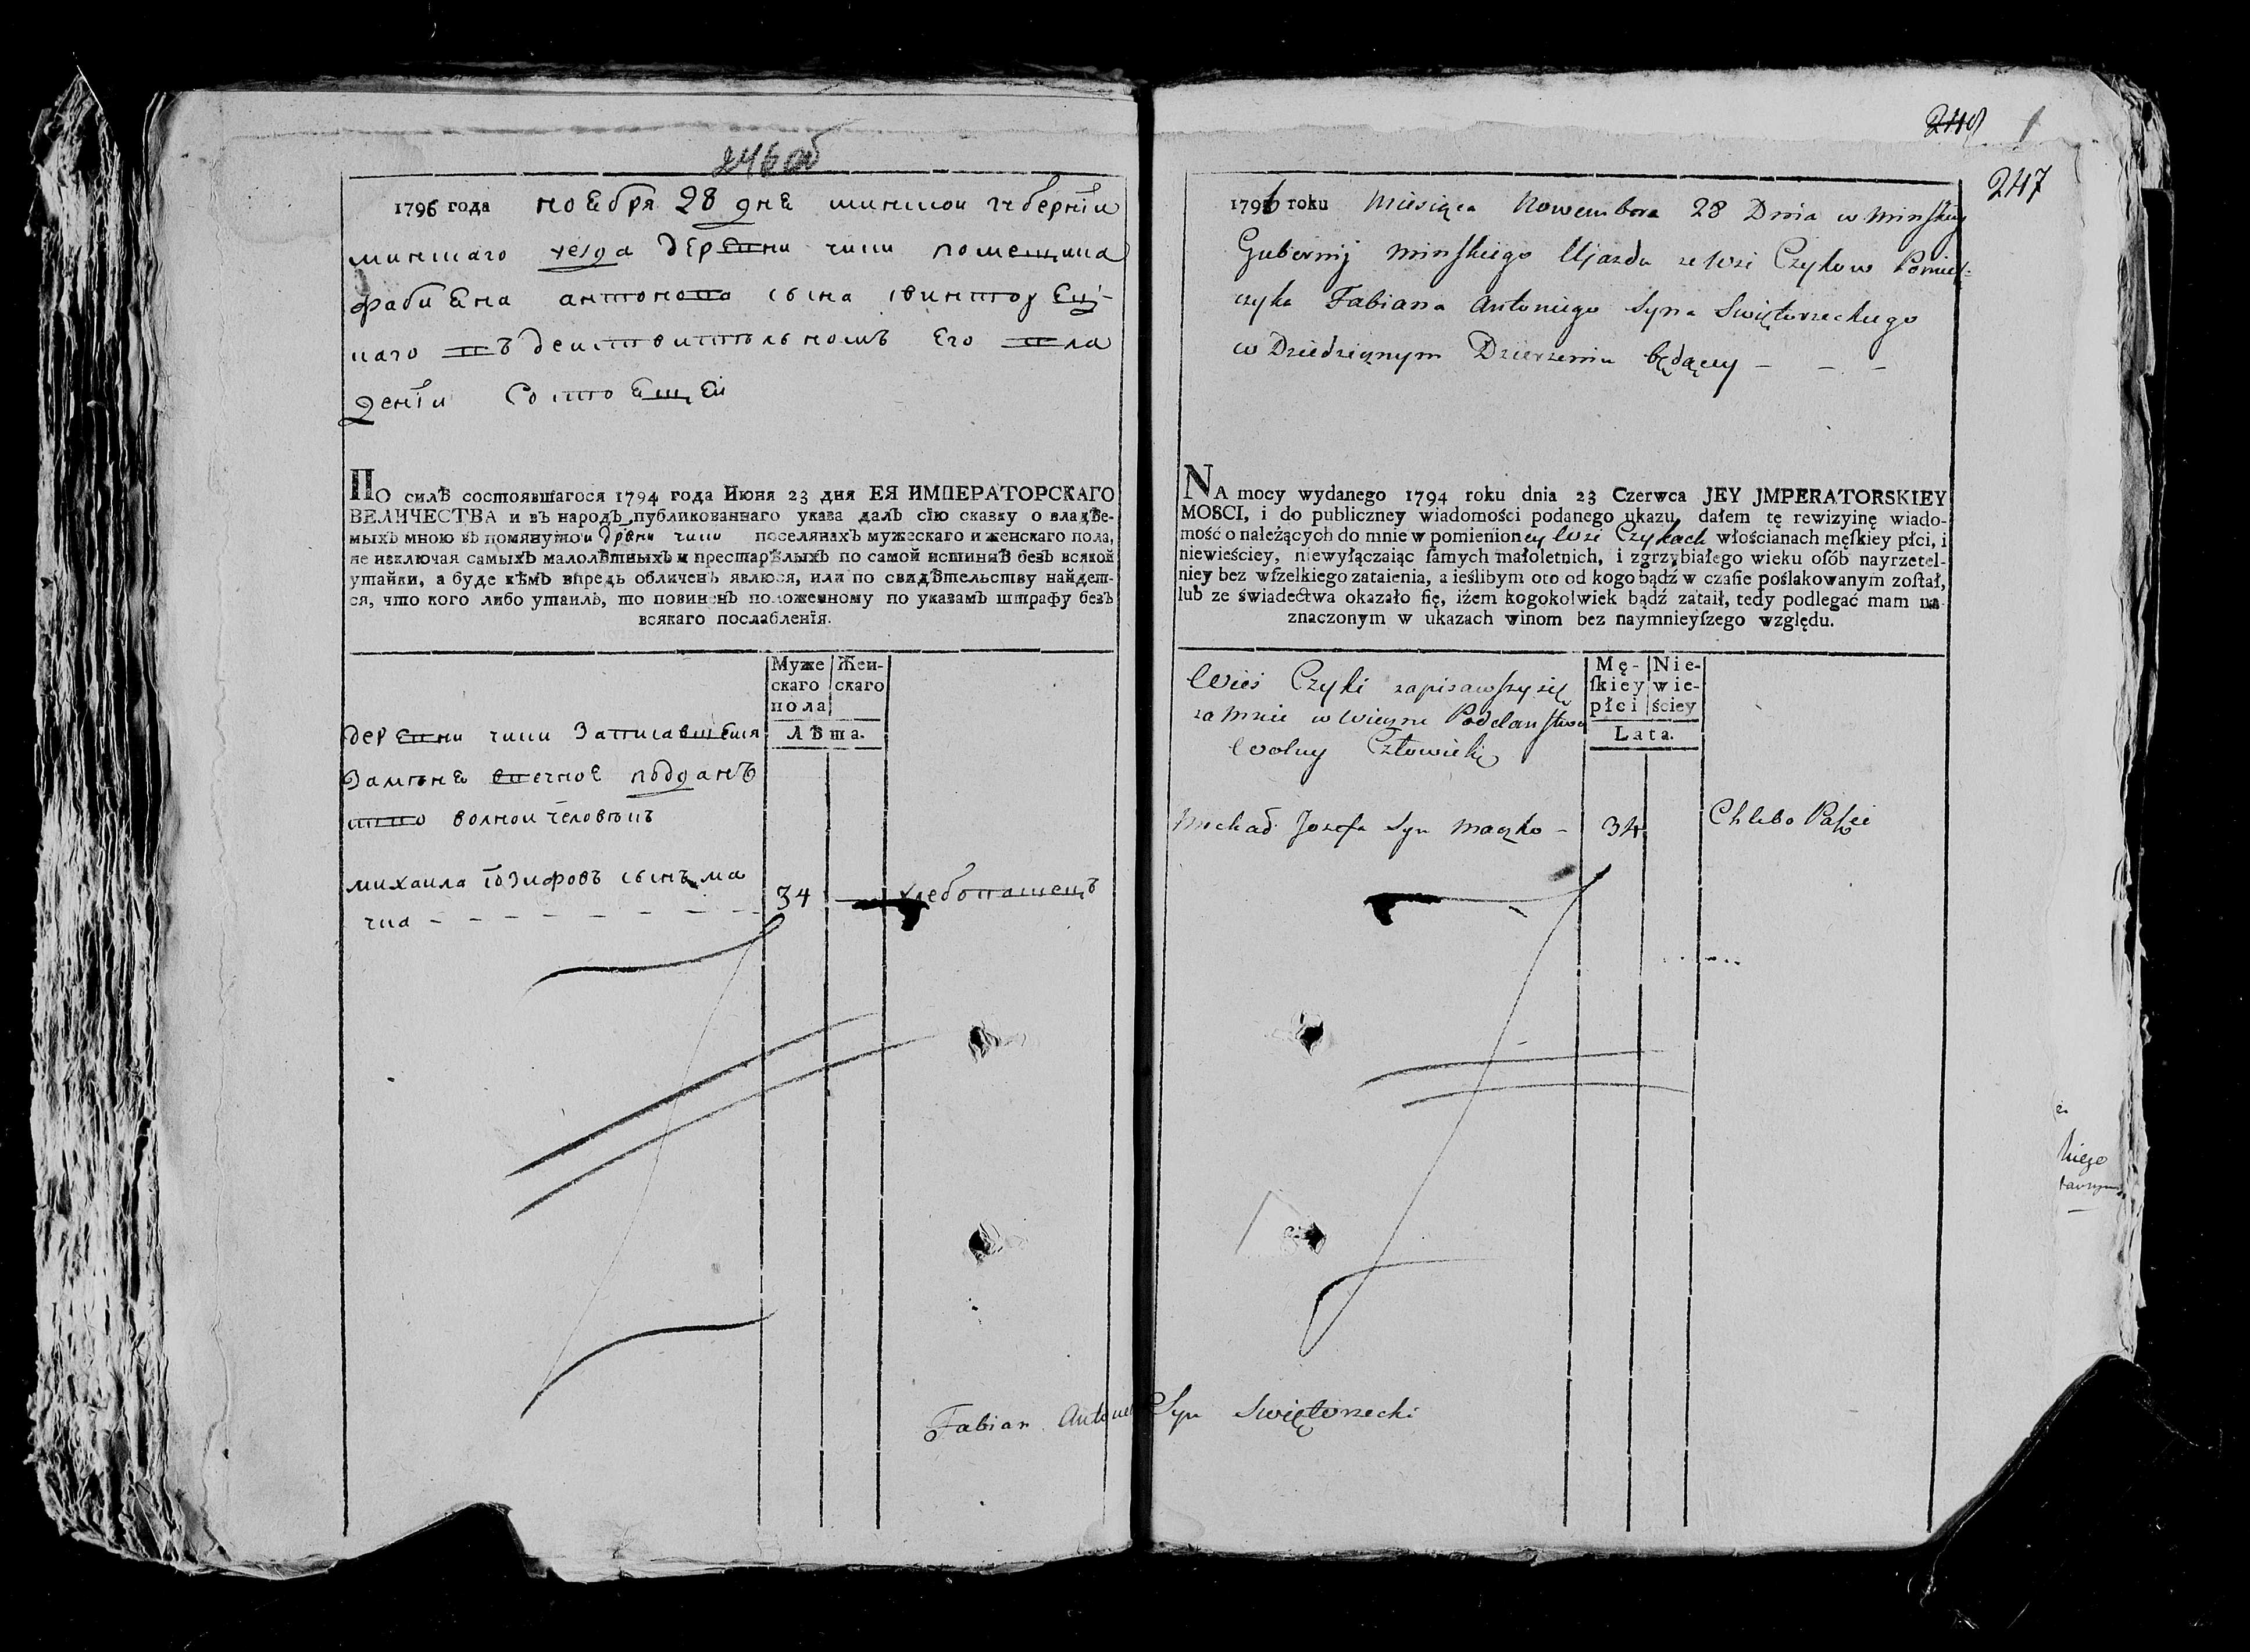 246 об
1796 года ноебря 28 дне минской губернїи
минскаго уезда деревни чики помещика
фабиена антонова сына свинторец-
каго въ деиствительномъ его вла
денїи состоещеи
ПО силѣ состоявшагося 1794 года Июня 23 дня ЕЯ ИМПЕРАТОРСКАГО
ВЕЛИЧЕСТВА и въ народъ публикованнаго указа далъ сїю сказку о владѣе-
мыхъ мною въ помянутой дрвни чики поселянахъ мужескаго и женскаго пола,
не исключая самыхъ малолѣтныхъ и престарѣлыхъ по самой истиннѣ безъ всякой
утайки, а буде кѣмъ впредь обличенъ явлюся, или по свидѣтельству найдет-
ся, что кого либо утаилъ, то повиненъ положенному по указамъ штрафу безъ
всякаго послабленїя.
Муже Жен-
скаго скаго
пола
Лѣта.
деревни чики Записавшеися
Замъне вечное подданъ
ство волнои человѣкъ
михаила їозифовъ сынъ ма
чка - - - - - - - 34 — хлебопашецъ
249 1
247
1796 roku Miesiąca Nowembra 28 Dnia w Minskiey
Gubernij Minskiego Ujazdu ze Wsi Czykow Pomiesz-
czyka Fabiana Antoniego Syna Swiętorzeckiego
w Dziedzicznym Dzierzeniu będącey - - -
NA mocy wydanego 1794 roku dnia 23 Czerwca JEY JMPERATORSKIEY
MOSCI, i do publiczney wiadomości podanego ukazu, dałem tę rewizyinę wiado-
mość o należących do mnie w pomienioney Wsi Czykach włościanach męſkiey płci, i
niewieściey, niewyłączaiąc ſamych małoletnich, i zgrzybiałego wieku oſób nayrzetel-
niey bez wſzelkiego zataienia, a ieślibym oto od kogo bądź w czaſie poślakowanym zoſtał,
lub ze świadectwa okazało ſię, iżem kogokolwiek bądź zataił, tedy podlegać mam na-
znaczonym w ukazach winom bez naymnieyſzego względu.
Mę- Nie-
ſkiey wie-
płci ściey
Lata.
Wieś Czyki zapisawszy się
za mnie w Wieczne Poddanstwo
Wolny Człowiek
Michał Jozefa Syn Maczko - 34 Chlebo Paszec
Fabian Antoni Syn Swiętorzecki